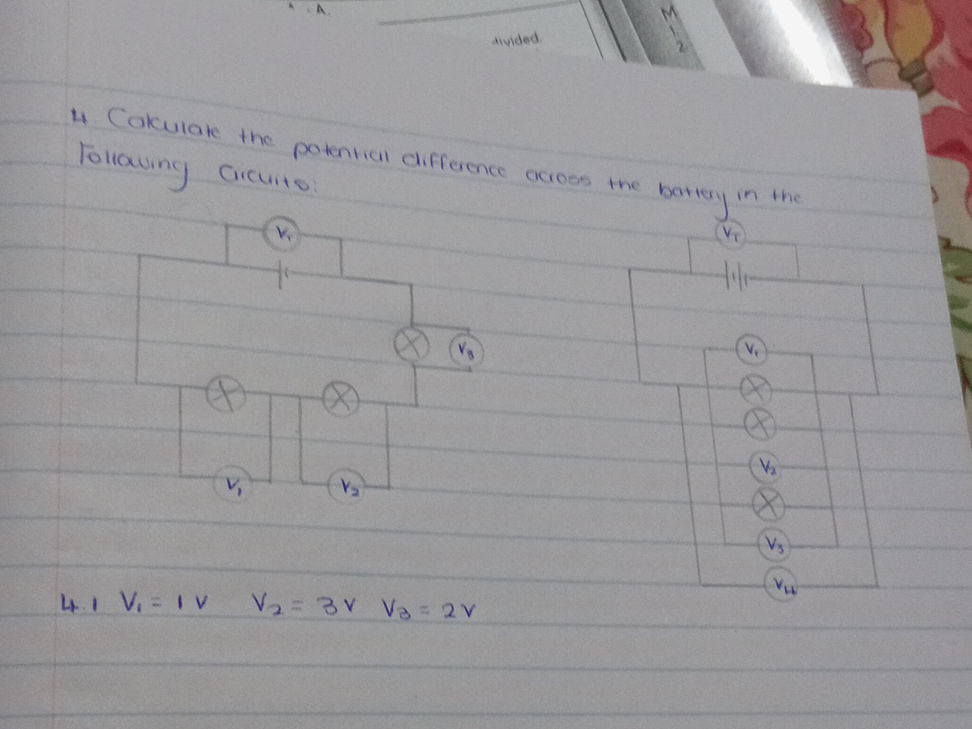 . A.
divided
M
1
2
4. Calculate the potential difference across the battery in the
following circuits:
VT
V3
V1
V2
VT
V1
V2
V3
V4
4.1 V1 = 1V V2 = 3V V3 = 2V